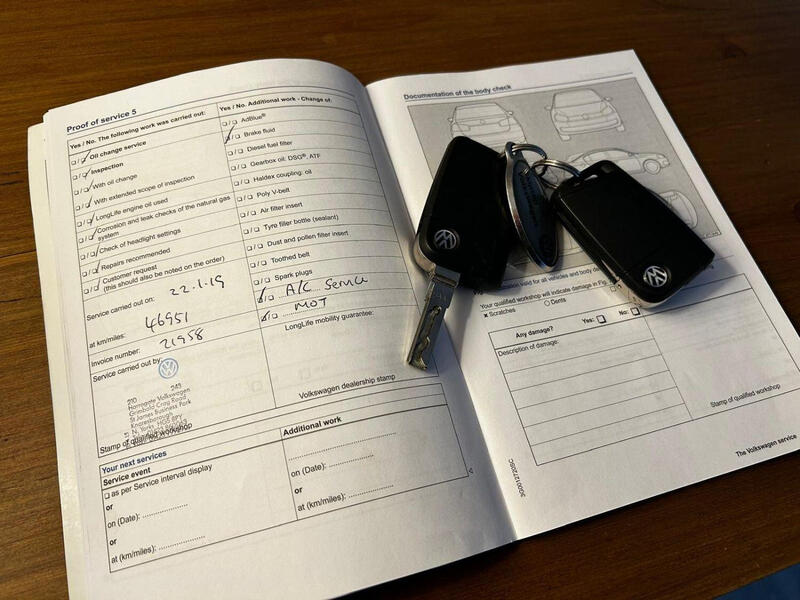 Proof of service 5
Yes / No. The following work was carried out:
Oil change service
Inspection
With oil change
With extended scope of inspection
LongLife engine oil used
Corrosion and leak checks of the natural gas
system
Check of headlight settings
Repairs recommended
Customer request
(this should also be noted on the order)
Service carried out on: 22.1.19
at km/miles: 46951
Invoice number: 21958
Service carried out by:
210 243
Harrogate Volkswagen
Grimbald Crag Road
St James Business Park
Knaresborough
N. Yorks. HG5 8PY
Stamp of qualified workshop
Yes / No. Additional work - Change of:
AdBlue®
Brake fluid
Diesel fuel filter
Gearbox oil: DSG®, ATF
Haldex coupling: oil
Poly V-belt
Air filter insert
Tyre filler bottle (sealant)
Dust and pollen filter insert
Toothed belt
Spark plugs
A/C Service
MOT
LongLife mobility guarantee:
Volkswagen dealership stamp
Your next services
Service event
as per Service interval display
or
on (Date):
or
at (km/miles):
Additional work
on (Date):
or
at (km/miles):
Documentation of the body check
valid for all vehicles and body
Your qualified workshop will indicate damage in Fig.
x Scratches ○ Dents
Any damage? Yes: No:
Description of damage:
Stamp of qualified workshop
3G0012720SC
The Volkswagen service